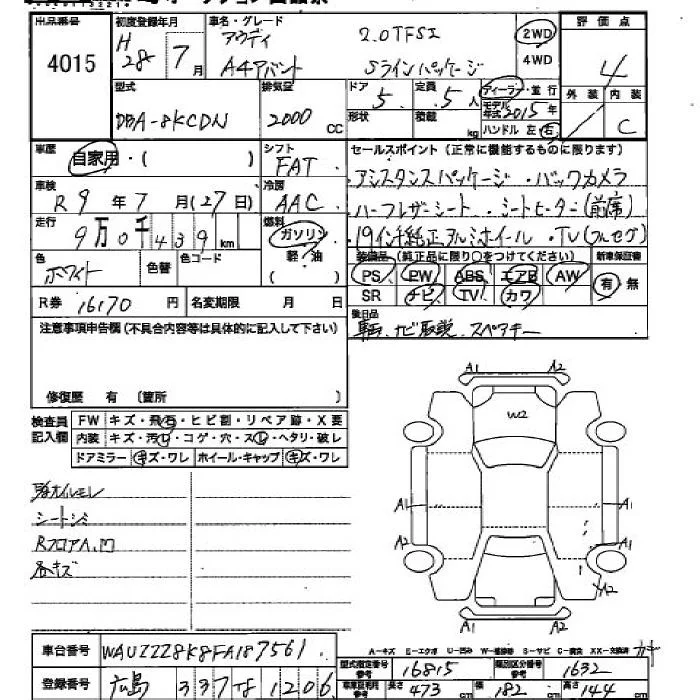 出品番号 初度登録年月 車名・グレード 評価点
4015 H28年7月 アウディ 2.0TFSI 2WD 4WD 4
A4アバント Sラインパッケージ
型式 排気量 ドア 定員 ディーラー・並行 外装 内装
DBA-8KCDN 2000cc 5 5人 モデル年式 2015年 C
形状 積載 kg ハンドル 左 右
車歴 自家用・( ) シフト FAT セールスポイント(正常に機能するものに限ります)
車検 R9年7月(27日) 冷房 AAC ・アシスタンスパッケージ・バックカメラ
走行 9万0千439km 燃料 ガソリン 軽油 ( ) ・ハーフレザーシート・シートヒーター(前席)
・19インチ純正アルミホイール・TV(フルセグ)
色 ホワイト 色替 色コード 装備品(純正品に限り○をつけてください) 新車保証書
PS PW ABS エアB AW 有・無
SR ナビ TV カワ
R券 16170円 名変期限 月 日
後日品
注意事項申告欄(不具合内容等は具体的に記入して下さい)
ナビ取説、スペアキー
修復歴 有 〔箇所 〕
検査員記入欄 FW キズ・飛石・ヒビ割・リペア跡・X要
内装 キズ・汚レ・コゲ・穴・スレ・ヘタリ・破レ
ドアミラー キズ・ワレ ホイール・キャップ キズ・ワレ
A1 A2
W2
A1 A1
A2 A2
A1 A2
シートシミ
各キズ
A-キズ E-エクボ U-凹み W-補修跡 S-サビ C-腐食 XX-交換済
車台番号 WAUZZZ8K8FA187561 型式指定番号 参考 16815 類別区分番号 参考 1632
登録番号 広島 337 1206 長さ 473cm 幅 182cm 高さ 144cm